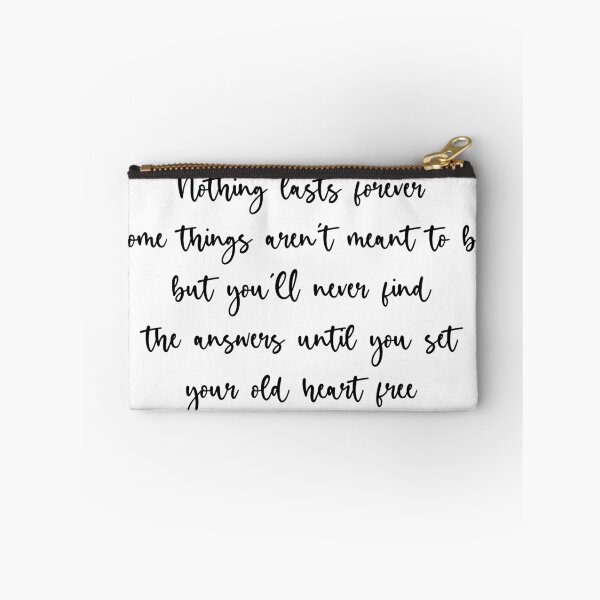 Nothing lasts forever
ome things aren't meant to b
but you'll never find
the answers until you set
your old heart free